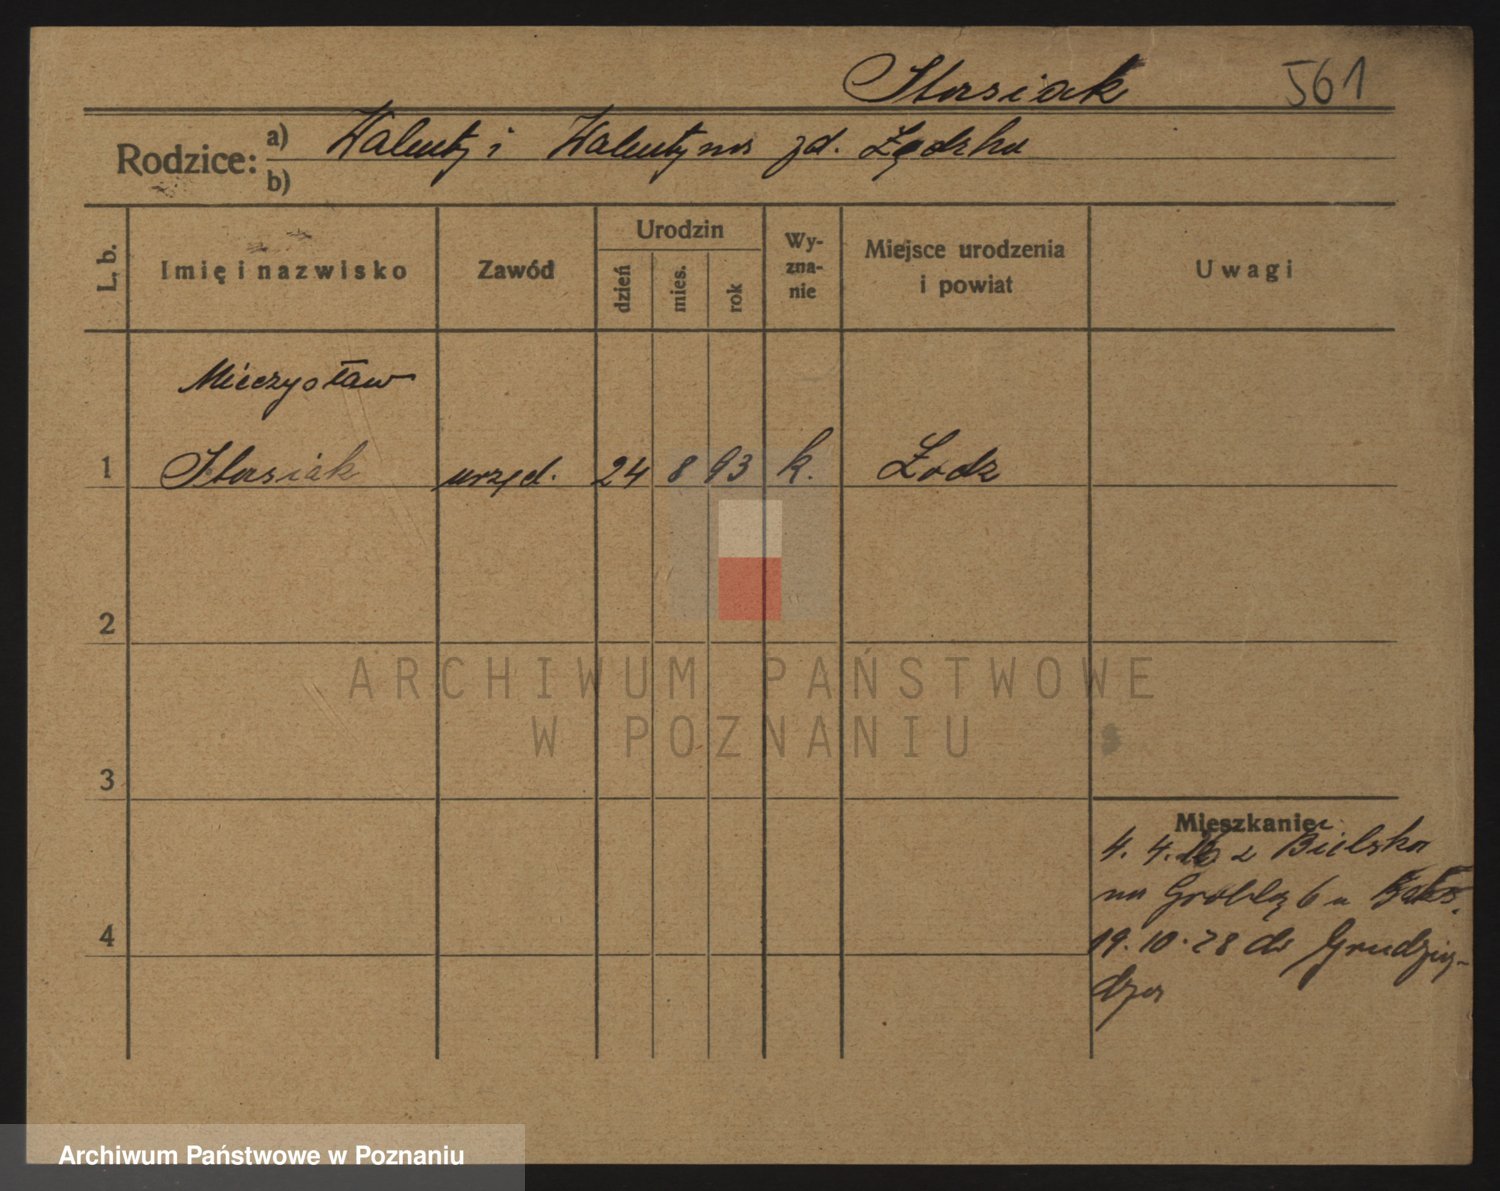 Stasiak 561
Rodzice: a) Walenty i Walentyna zd.
b)
L. b. Imię i nazwisko Zawód Urodzin Wy-zna-nie Miejsce urodzenia i powiat Uwagi
dzień mies. rok
Mieczysław
1 Stasiak urzęd. 24 8 93 k. Łodz
2
ARCHIWUM PAŃSTWOWE
W POZNANIU
3
Mieszkanie:
4. 4. z Bielska
na Groblą 6 u
4
19.10.28 do Grudzią-
dza
Archiwum Państwowe w Poznaniu